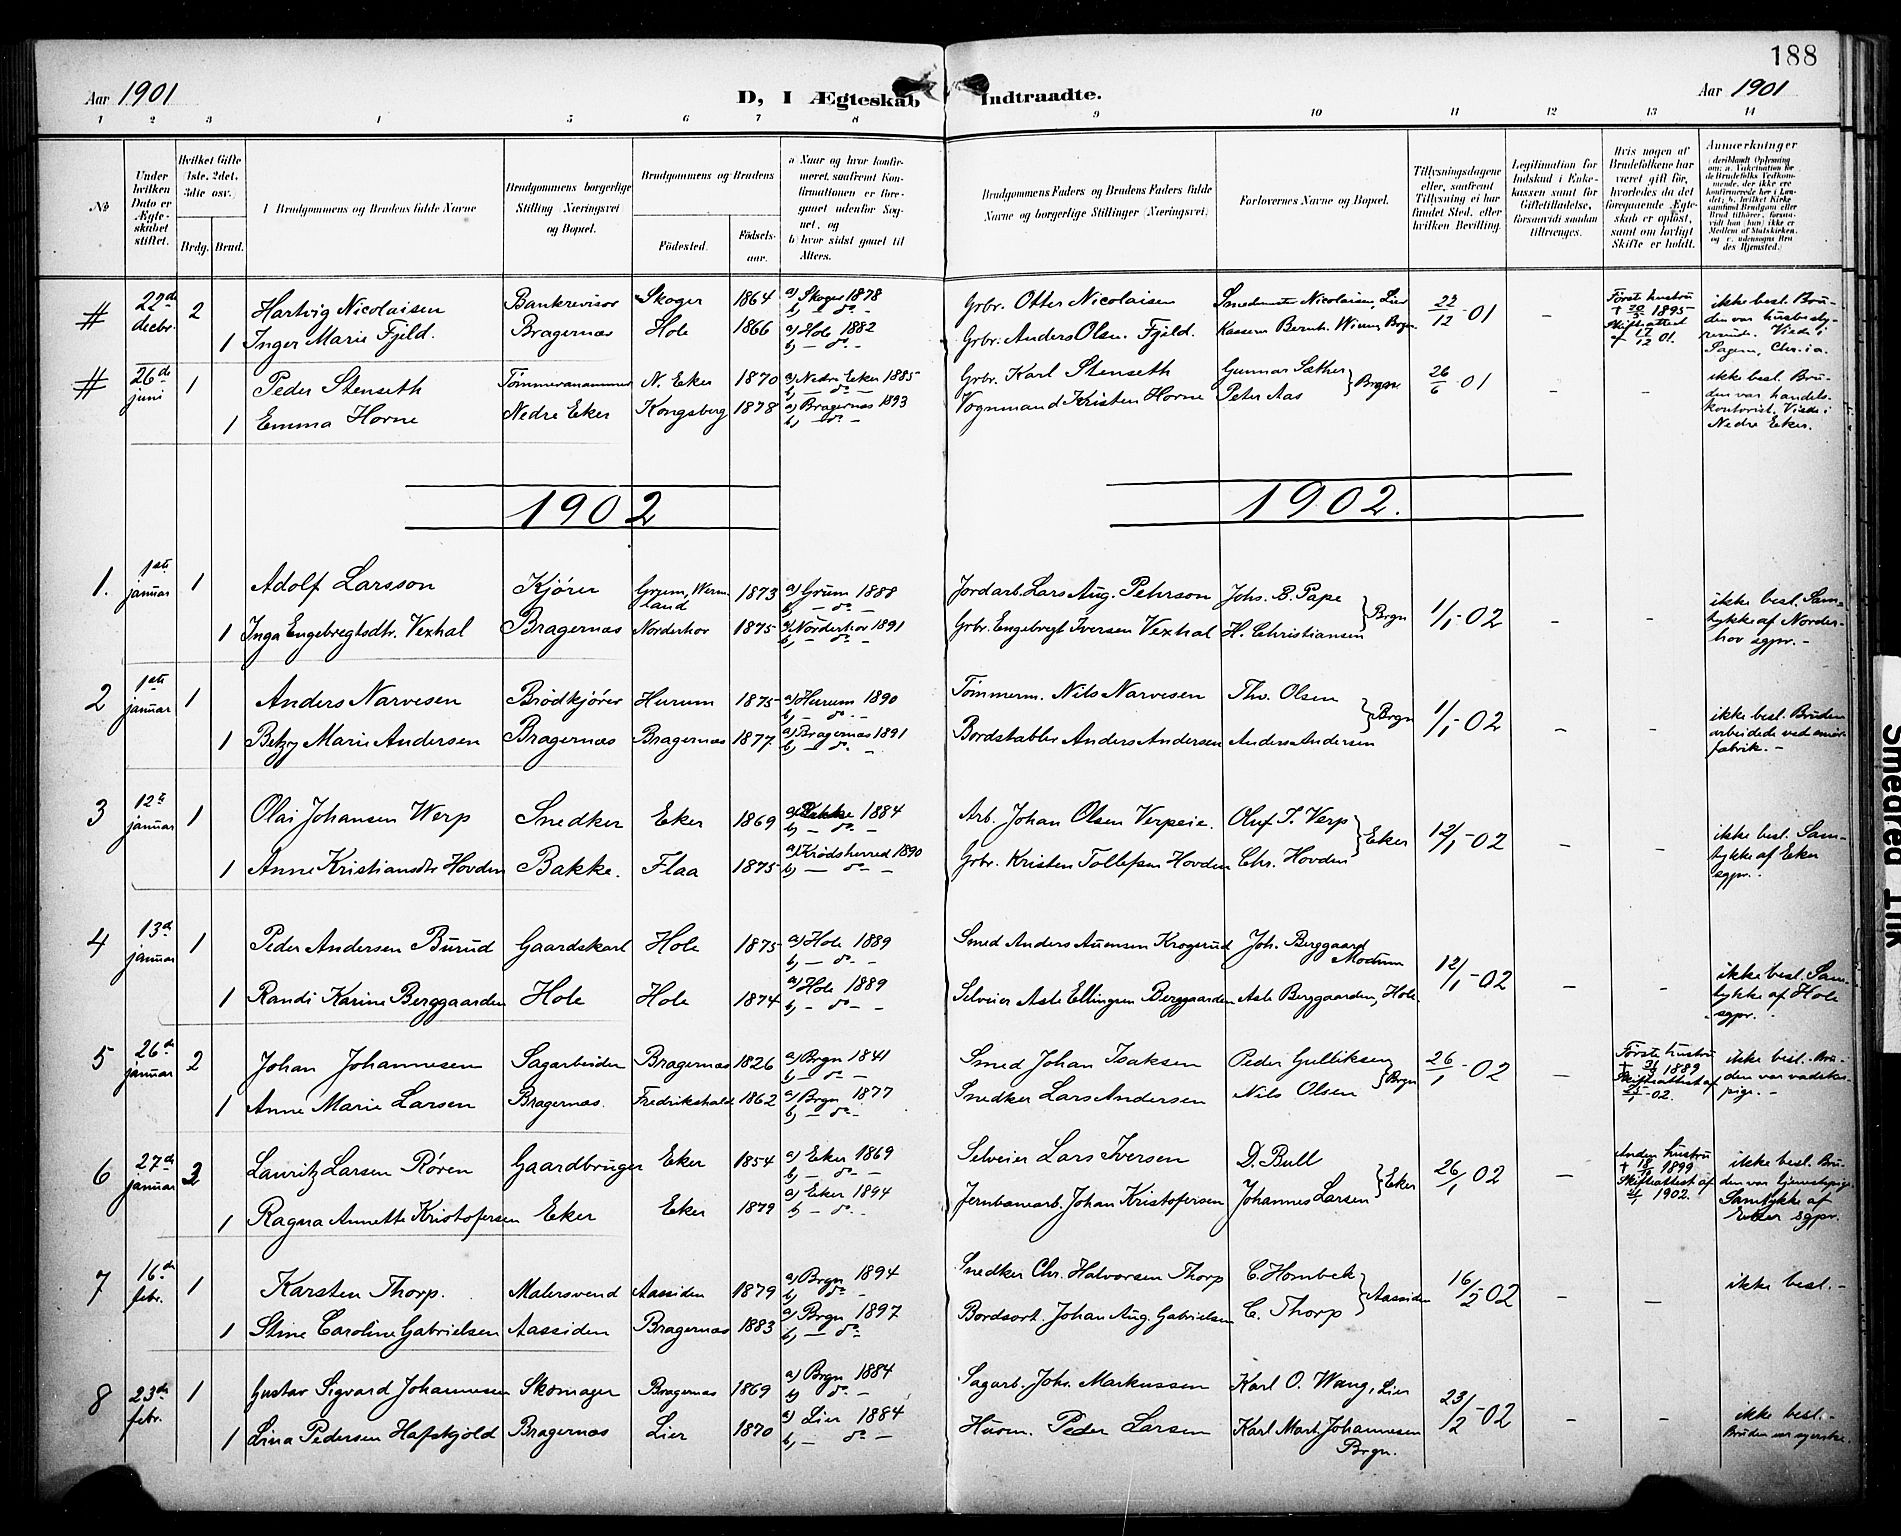 188
Aar 1901
D, I Ægteskab Indtraadte.
Aar 1901
1 2 3 4 5 6 7 8 9 10 11 12 13 14
No
Under hvilken Dato er Ægteskabet stiftet.
Hvilket Gifte (1ste, 2det, 3die osv.)
Brdg. Brud.
Brudgommens og Brudens fulde Navne
Brudgommens borgerlige Stilling (Næringsvei) og Bopæl.
Brudgommens og Brudens
Fødested.
Fødselsaar.
a Naar og hvor konfirmeret, saafremt Konfirmationen er foregaaet udenfor Sognet, og
b hvor sidst gaaet til Alters.
Brudgommens Faders og Brudens Faders fulde Navne og borgerlige Stillinger (Næringsvei)
Forlovernes Navne og Bopæl.
Tillysningsdagene eller, saafremt Tillysning ei har fundet Sted, efter hvilken Bevilling.
Legitimation for Indskud i Enkekassen samt for Giftetilladelse, forsaavidt saadan tiltrænges.
Hvis nogen af Brudefolkene har været gift før, hvorledes da det foregaaende Ægteskab er opløst, samt om lovligt Skifte er holdt.
Anmærkninger
# 22de decbr. 2 Hartvig Nicolaisen Bankrevisor Skoger 1864 a) Skoger 1878 b) — do — Grbr. Otter Nicolaisen Nicolaisen, Lier 22/12-01 — Første hustru † 1895 Skifteattest af 17/12 01. ikke besl. Bruden var husbestyrerinde. Viede i Chr.ia.
1 Inger Marie Fjeld. Bragernæs Hole 1866 a) Hole 1882 b) — do — Grbr. Anders Olsn. Fjeld. Kasserer Bernh. Brgn.
# 26de juni 1 Peder Stenseth N. Eker 1870 a) Nedre Eker 1885 b) — do — Grbr. Karl Stenseth Gunnar Sæther 26/6-01 — — ikke besl. Bruden var handelskontorist. Viede i Nedre Eker.
1 Emma Horne Nedre Eker Kongsberg 1878 a) Bragernæs 1893 b) — do — Vognmand Kristen Horne Peter Aas
1902 1902.
1. 1ste januar 1 Adolf Larsson Kjører Grum, Wermland 1873 a) Grum 1888 b) — do — Jordarb. Lars Aug. Pehrson Johs. B. Pape Brgn 1/1-02 — — ikke besl. Samtykke af Norderhov sgpr. —
1 Inga Engebregtsdtr. Vexhal Bragernæs Norderhov 1875 a) Norderhov 1891 b) — do — Grbr. Engebregt Iversen Vexhal H. Christiansen
2 1ste januar 1 Anders Narvesen Brødkjører Hurum 1875 a) Hurum 1890 b) — do — Tømmerm. Nils Narvesen Thv. Olsen Brgn 1/1-02 — — ikke besl. Bruden arbeidede ved fabrik. —
1 Betzy Marie Andersen Bragernæs Bragernæs 1877 a) Bragernæs 1891 b) — do — Bordstabler Anders Andersen Anders Andersen
3 12te januar 1 Olai Johansen Werp Snedker Eker 1869 a) Bakke 1884 b) — do — Arb. Johan Olsen Verpeie. Oluf T. Verp Eker 12/1-02 — — ikke besl. Samtykke af Eker sgpr. —
1 Anne Kristiansdtr Hovden Bakke. Flaa 1875 a) Krødsherred 1890 b) — do — Grbr. Kristen Tollefsen Hovden Chr. Hovden
4 13de januar 1 Peder Andersen Burud Gaardskarl Hole 1875 a) Hole 1889 b) — do — Smed Anders Krogerud Joh. Berggaard Modum 12/1-02 — — ikke besl. Samtykke af Hole sgpr. —
1 Randi Karine Berggaarden Hole Hole 1874 a) Hole 1889 b) — do — Selveier Asle Ellingsen Berggaarden Asle Berggaarden, Hole
5 26de januar 2 Johan Johannesen Sagarbeider Bragernæs 1826 a) Brgn 1841 b) — do — Smed Johan Isaksen Peder Gulliksen Brgn 26/1-02 — Første hustru † 1889 Skifteattest af -02. ikke besl. Bruden var vadskepige. —
1 Anne Marie Larsen Bragernæs. Fredrikshald 1862 a) Brgn 1877 b) — do — Snedker Lars Andersen Nils Olsen
6 27de januar 3 Lauritz Larsen Røren Gaardbruger Eker 1854 a) Eker 1869 b) — do — Selveier Lars Iversen D. Bull Eker 26/1-02 — Anden hustru † 1899 Skifteattest af 1902. ikke besl. Bruden var tjenestepige. Samtykke af Eker sgpr.
1 Ragna Annette Kristofersen Eker Eker 1879 a) Eker 1894 b) — do — Jernbanearb. Johan Kristofersen Johannes Larsen
7 16de febr. 1 Karsten Thorp. Malersvend Aassiden 1879 a) Brgn 1894 b) do — Snedker Chr. Halvorsen Thorp C. Hornbek Aassiden 16/2-02 — — ikke besl. —
1 Stine Caroline Gabrielsen Aassiden Bragernæs 1883 a) Brgn 1897 b) — do — Bordsort. Johan Aug. Gabrielsen C. Thorp
8 23de febr. 1 Gustav Sigvard Johannesen Skomager Bragernæs 1869 a) Brgn 1884 b) do — Sagarb. Johs. Markussen Karl O. Wang, Lier 23/2-02 — — ikke besl. — Bruden var syerske.
1 Lina Pedersen Hafskjold Bragernæs Lier 1870 a) Lier 1884 b) — do — Husm. Peder Larsen Karl Mart. Johannesen Brgn.
Smedrud Tilk